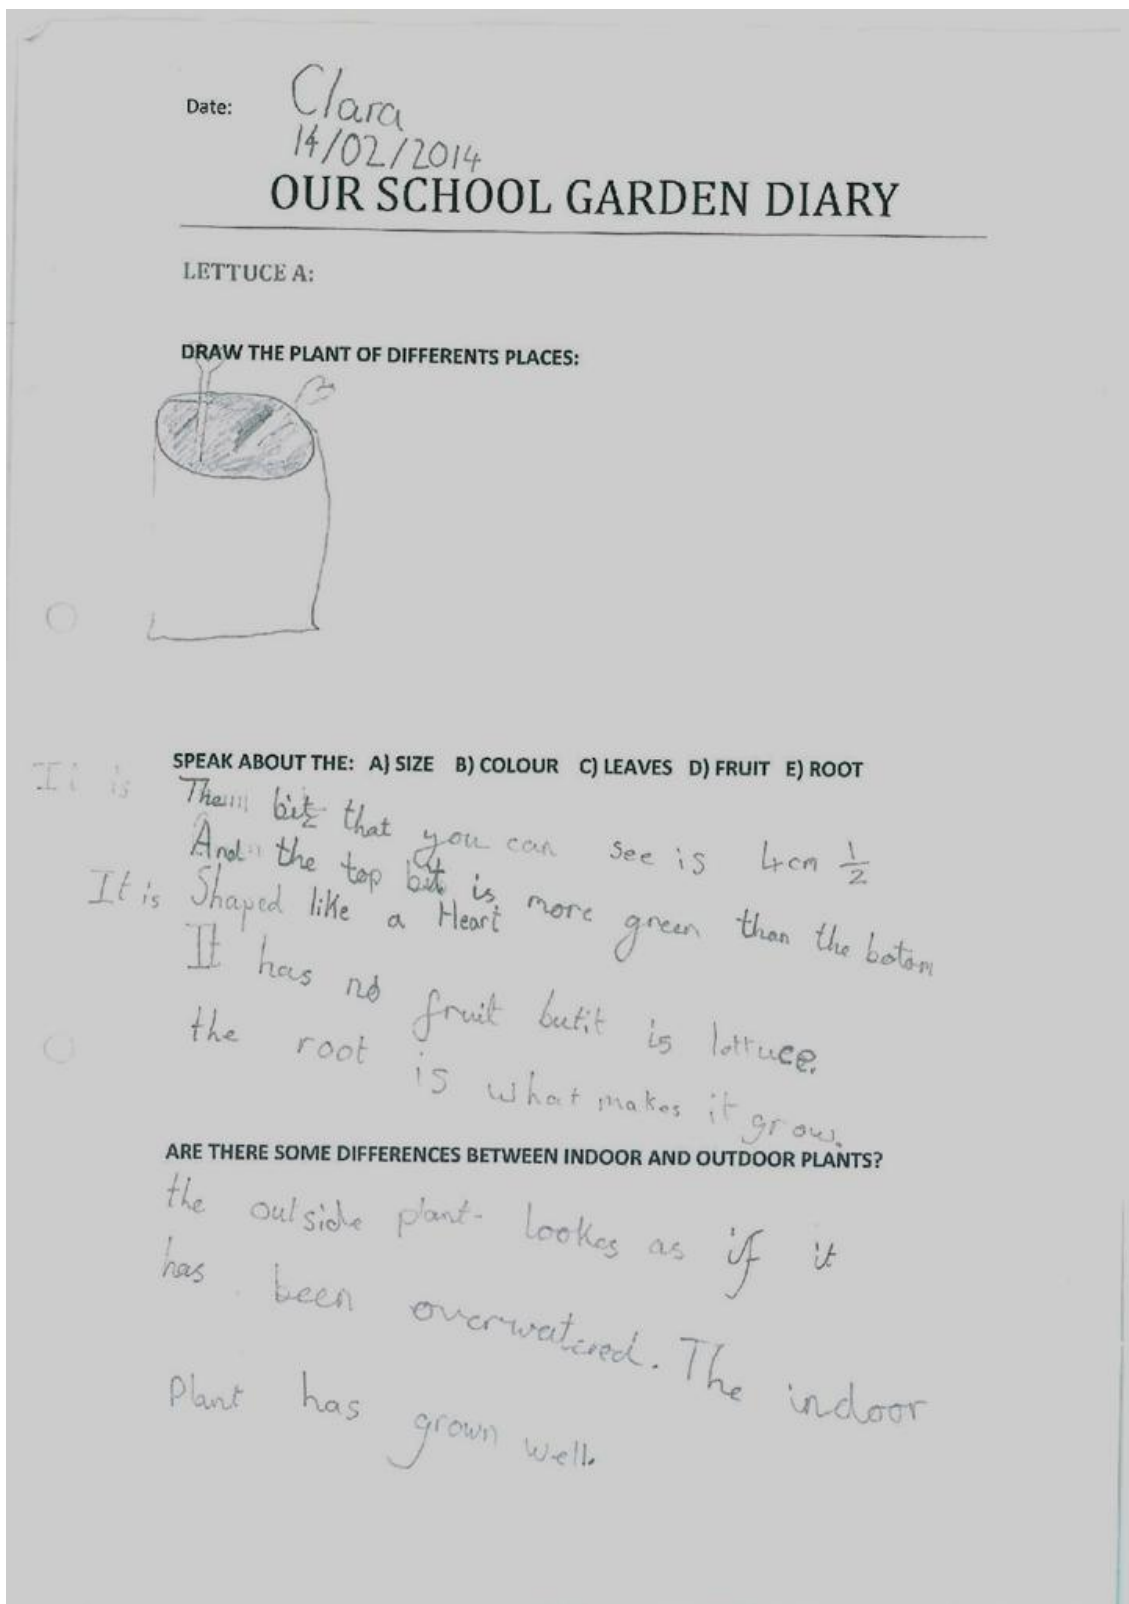 Date: Clara
14/02/2014
OUR SCHOOL GARDEN DIARY
LETTUCE A:
DRAW THE PLANT OF DIFFERENTS PLACES:
SPEAK ABOUT THE: A) SIZE B) COLOUR C) LEAVES D) FRUIT E) ROOT
It is The bit that you can see is 4cm 1/2
And the top bit is more green than the botom
It is Shaped like a Heart
It has no fruit but it is lettuce.
the root is what makes it grow.
ARE THERE SOME DIFFERENCES BETWEEN INDOOR AND OUTDOOR PLANTS?
the outside plant lookes as if it
has been overwatered. The indoor
Plant has grown well.